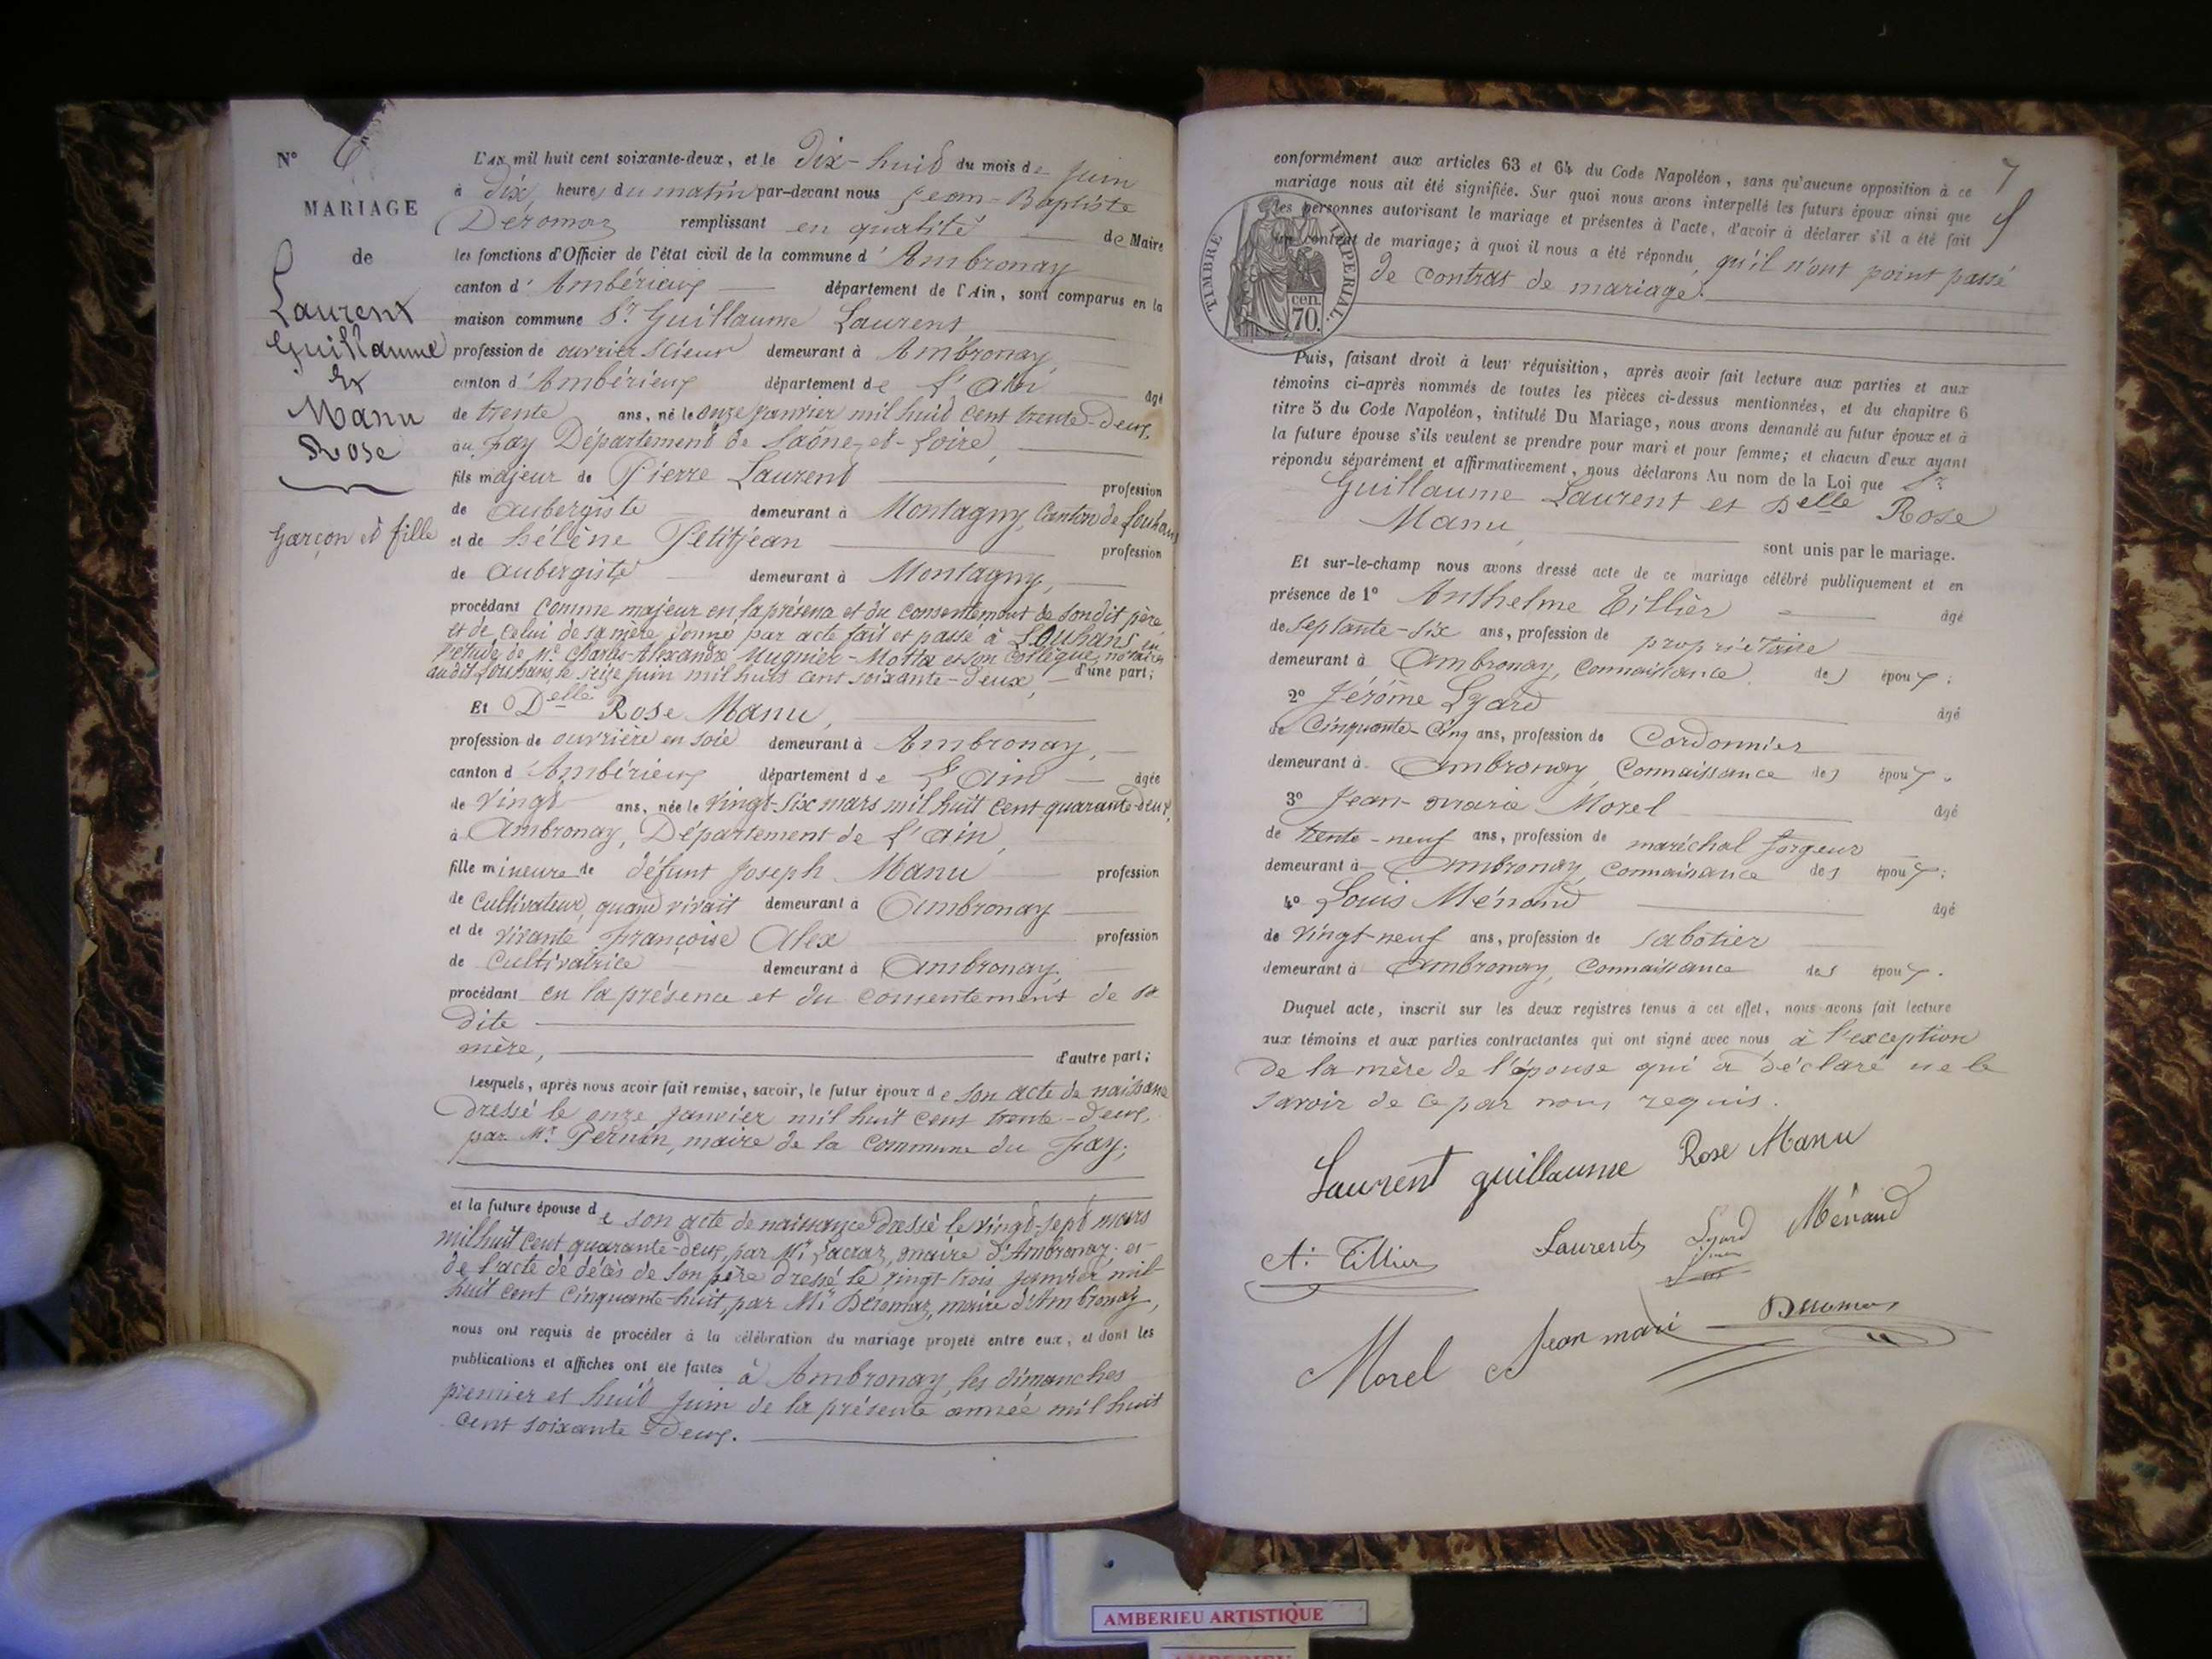 N° 6
MARIAGE
de
Laurent
Guillaume
et
Manu
Rose
Garçon et fille
L'an mil huit cent soixante-deux, et le Dix-huit du mois de juin
à dix heures du matin par-devant nous Jean-Baptiste
Déromas remplissant en qualité de Maire
les fonctions d'Officier de l'état civil de la commune d'Ambronay
canton d'Ambérieux département de l'Ain, sont comparus en la
maison commune Sr Guillaume Laurent
profession de ouvrier scieur demeurant à Ambronay,
canton d'Ambérieux département de l'Ain âgé
de trente ans, né le onze janvier mil huit cent trente-deux,
au Fay Département de Saône-et-Loire,
fils majeur de Pierre Laurent profession
de aubergiste demeurant à Montagny, canton de Louhans
et de hélène Petitjean profession
de aubergiste demeurant à Montagny,
procédant comme majeur en la présence et du consentement de sondit père
et de celui de sa mère donné par acte fait et passé à Louhans, en
l'étude de Me Charles-Alexandre Mugnier-Motta et son collègue, notaires
audit Louhans, le seize juin mil huit cent soixante-deux, d'une part;
Et Delle Rose Manu,
profession de ouvrière en soie demeurant à Ambronay,
canton d'Ambérieux département de l'Ain âgée
de vingt ans, née le vingt-six mars mil huit cent quarante-deux,
à Ambronay, Département de l'Ain,
fille mineure de défunt Joseph Manu profession
de Cultivateur, quand vivait demeurant à Ambronay
et de vivante Françoise Alex profession
de Cultivatrice demeurant à Ambronay,
procédant en la présence et du consentement de sa
dite
mère, d'autre part;
Lesquels, après nous avoir fait remise, savoir, le futur époux de son acte de naissance
dressé le onze janvier mil huit cent trente-deux,
par Mr Pernin, maire de la commune du Fay;
et la future épouse de son acte de naissance dressé le vingt-sept mars
mil huit cent quarante-deux, par Mr Lacraz, maire d'Ambronay; et
de l'acte de décès de son père dressé le vingt trois janvier mil
huit cent cinquante-huit, par Mr Déromas, maire d'Ambronay,
nous ont requis de procéder à la célébration du mariage projeté entre eux, et dont les
publications et affiches ont été faites à Ambronay, les dimanches
premier et huit juin de la présente année mil huit
cent soixante deux.
7
conformément aux articles 63 et 64 du Code Napoléon, sans qu'aucune opposition à ce
mariage nous ait été signifiée. Sur quoi nous avons interpellé les futurs époux ainsi que
les personnes autorisant le mariage et présentes à l'acte, d'avoir à déclarer s'il a été fait
un contrat de mariage; à quoi il nous a été répondu, qu'il n'ont point passé
de contrat de mariage.
TIMBRE IMPERIAL.
cen.
70.
Puis, faisant droit à leur réquisition, après avoir fait lecture aux parties et aux
témoins ci-après nommés de toutes les pièces ci-dessus mentionnées, et du chapitre 6
titre 5 du Code Napoléon, intitulé Du Mariage, nous avons demandé au futur époux et à
la future épouse s'ils veulent se prendre pour mari et pour femme; et chacun d'eux ayant
répondu séparément et affirmativement, nous déclarons Au nom de la Loi que Sr
Guillaume Laurent et Delle Rose
Manu,
sont unis par le mariage.
Et sur-le-champ nous avons dressé acte de ce mariage célébré publiquement et en
présence de 1° Anthelme Tillier âgé
de septante-six ans, profession de propriétaire
demeurant à Ambronay, Connaissance des époux;
2° Jérôme Lyard âgé
de Cinquante-Cinq ans, profession de Cordonnier
demeurant à Ambronay, Connaissance des époux.
3° Jean-marie Morel âgé
de trente-neuf ans, profession de maréchal forgeur
demeurant à Ambronay, Connaissance des époux;
4° Louis Ménand âgé
de Vingt-neuf ans, profession de sabotier
demeurant à Ambronay, Connaissance des époux.
Duquel acte, inscrit sur les deux registres tenus à cet effet, nous avons fait lecture
aux témoins et aux parties contractantes qui ont signé avec nous à l'exception
de la mère de l'épouse qui a déclaré ne le
savoir de ce par nous requis.
Laurent guillaume Rose Manu
A. Tillier Laurent Lyard Ménand
Morel Jean mari Deromas
AMBERIEU ARTISTIQUE
AMBERIEU